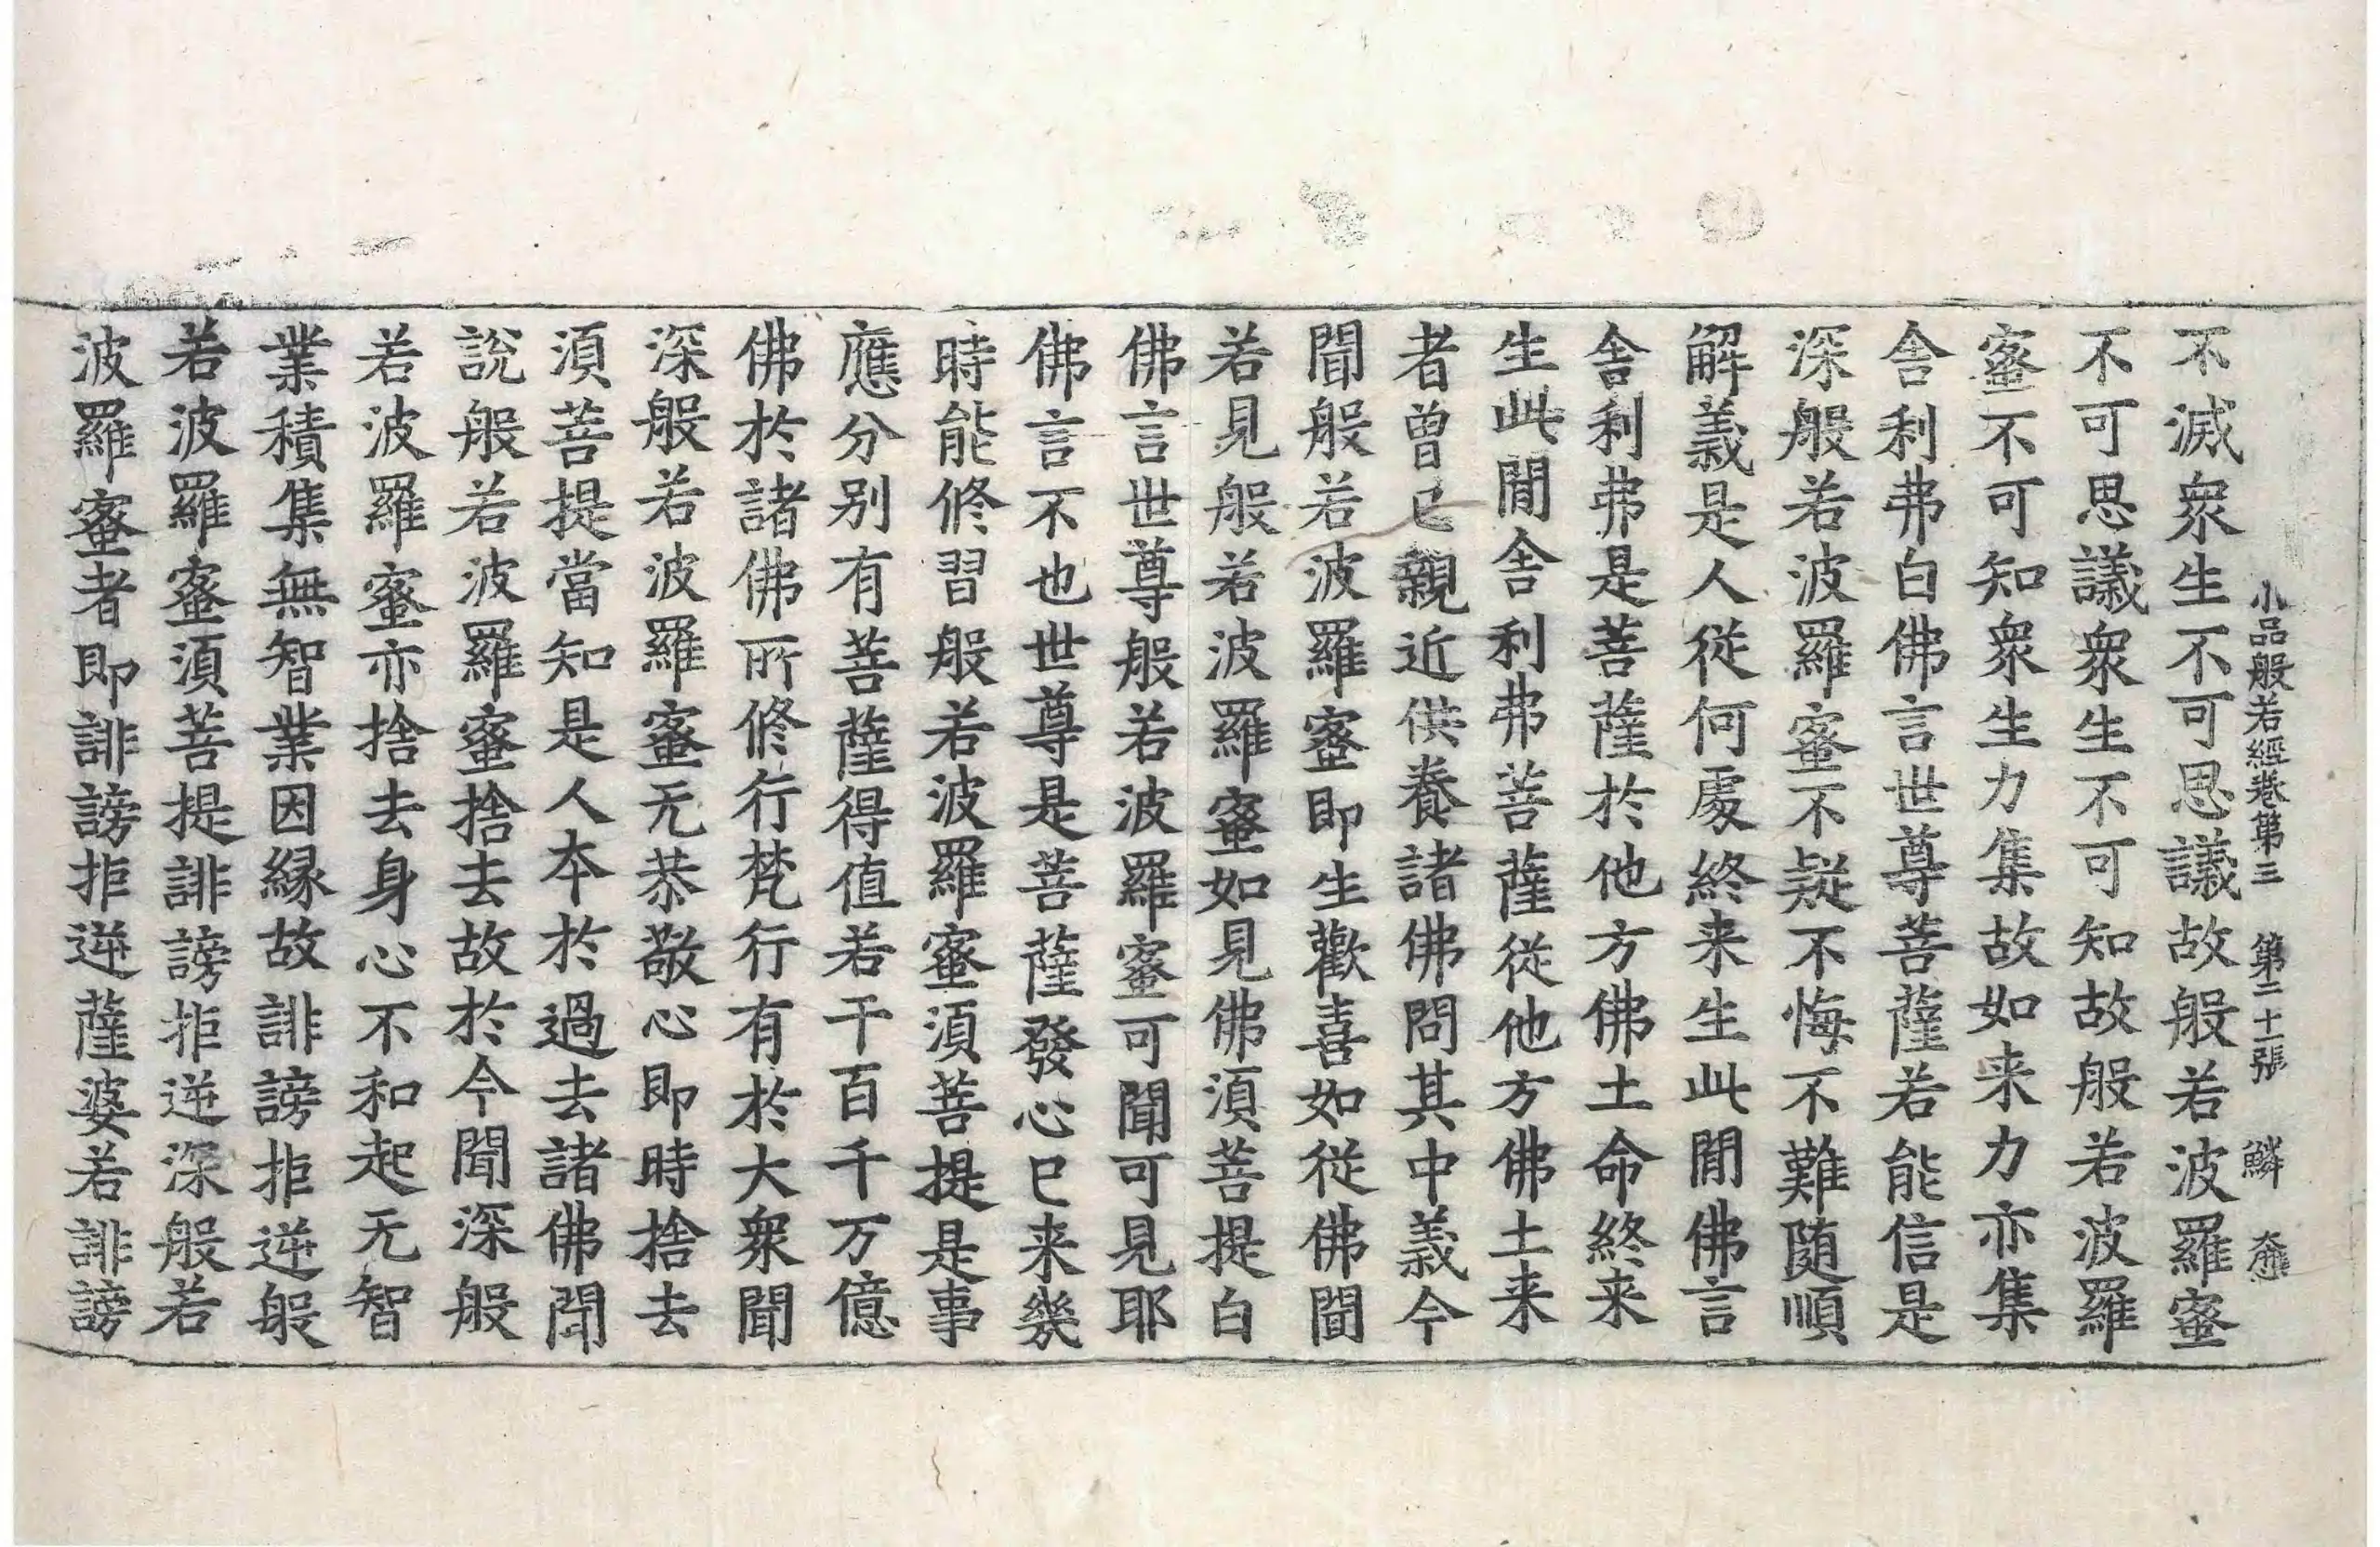 小品般若經卷第三 第二十一張 鱗
不滅衆生不可思議故般若波羅蜜
不可思議衆生不可知故般若波羅
蜜不可知衆生力集故如来力亦集
舍利弗白佛言世尊菩薩若能信是
深般若波羅蜜不疑不悔不難随順
解義是人從何處終来生此閒佛言
舍利弗是菩薩於他方佛土命終来
生此閒舍利弗菩薩從他方佛土来
者曾已親近供養諸佛問其中義今
聞般若波羅蜜即生歡喜如從佛聞
若見般若波羅蜜如見佛湏菩提白
佛言世尊般若波羅蜜可聞可見耶
佛言不也世尊是菩薩發心已来幾
時能修習般若波羅蜜湏菩提是事
應分別有菩薩得值若干百千万億
佛於諸佛所修行梵行有於大衆聞
深般若波羅蜜无恭敬心即時捨去
湏菩提當知是人本於過去諸佛聞
說般若波羅蜜捨去故於今聞深般
若波羅蜜亦捨去身心不和起无智
業積集無智業因緣故誹謗拒逆般
若波羅蜜湏菩提誹謗拒逆深般若
波羅蜜者即誹謗拒逆薩婆若誹謗